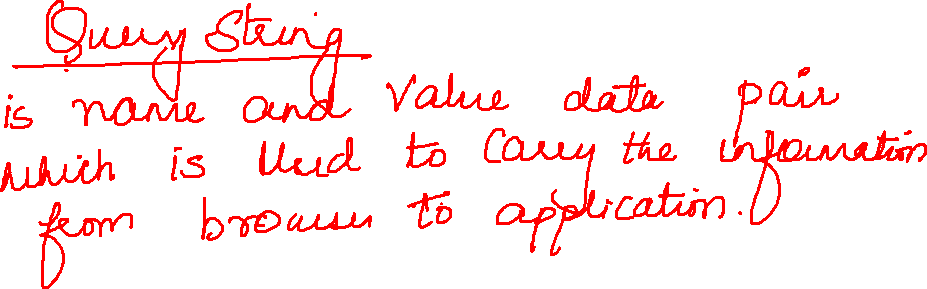 Query String
is name and value data pair
which is used to carry the information
from browser to application.